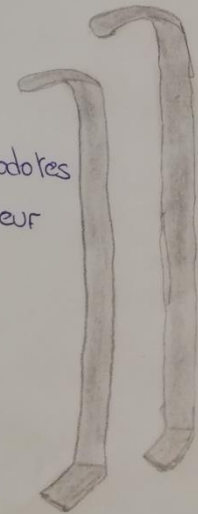 odotes
eur